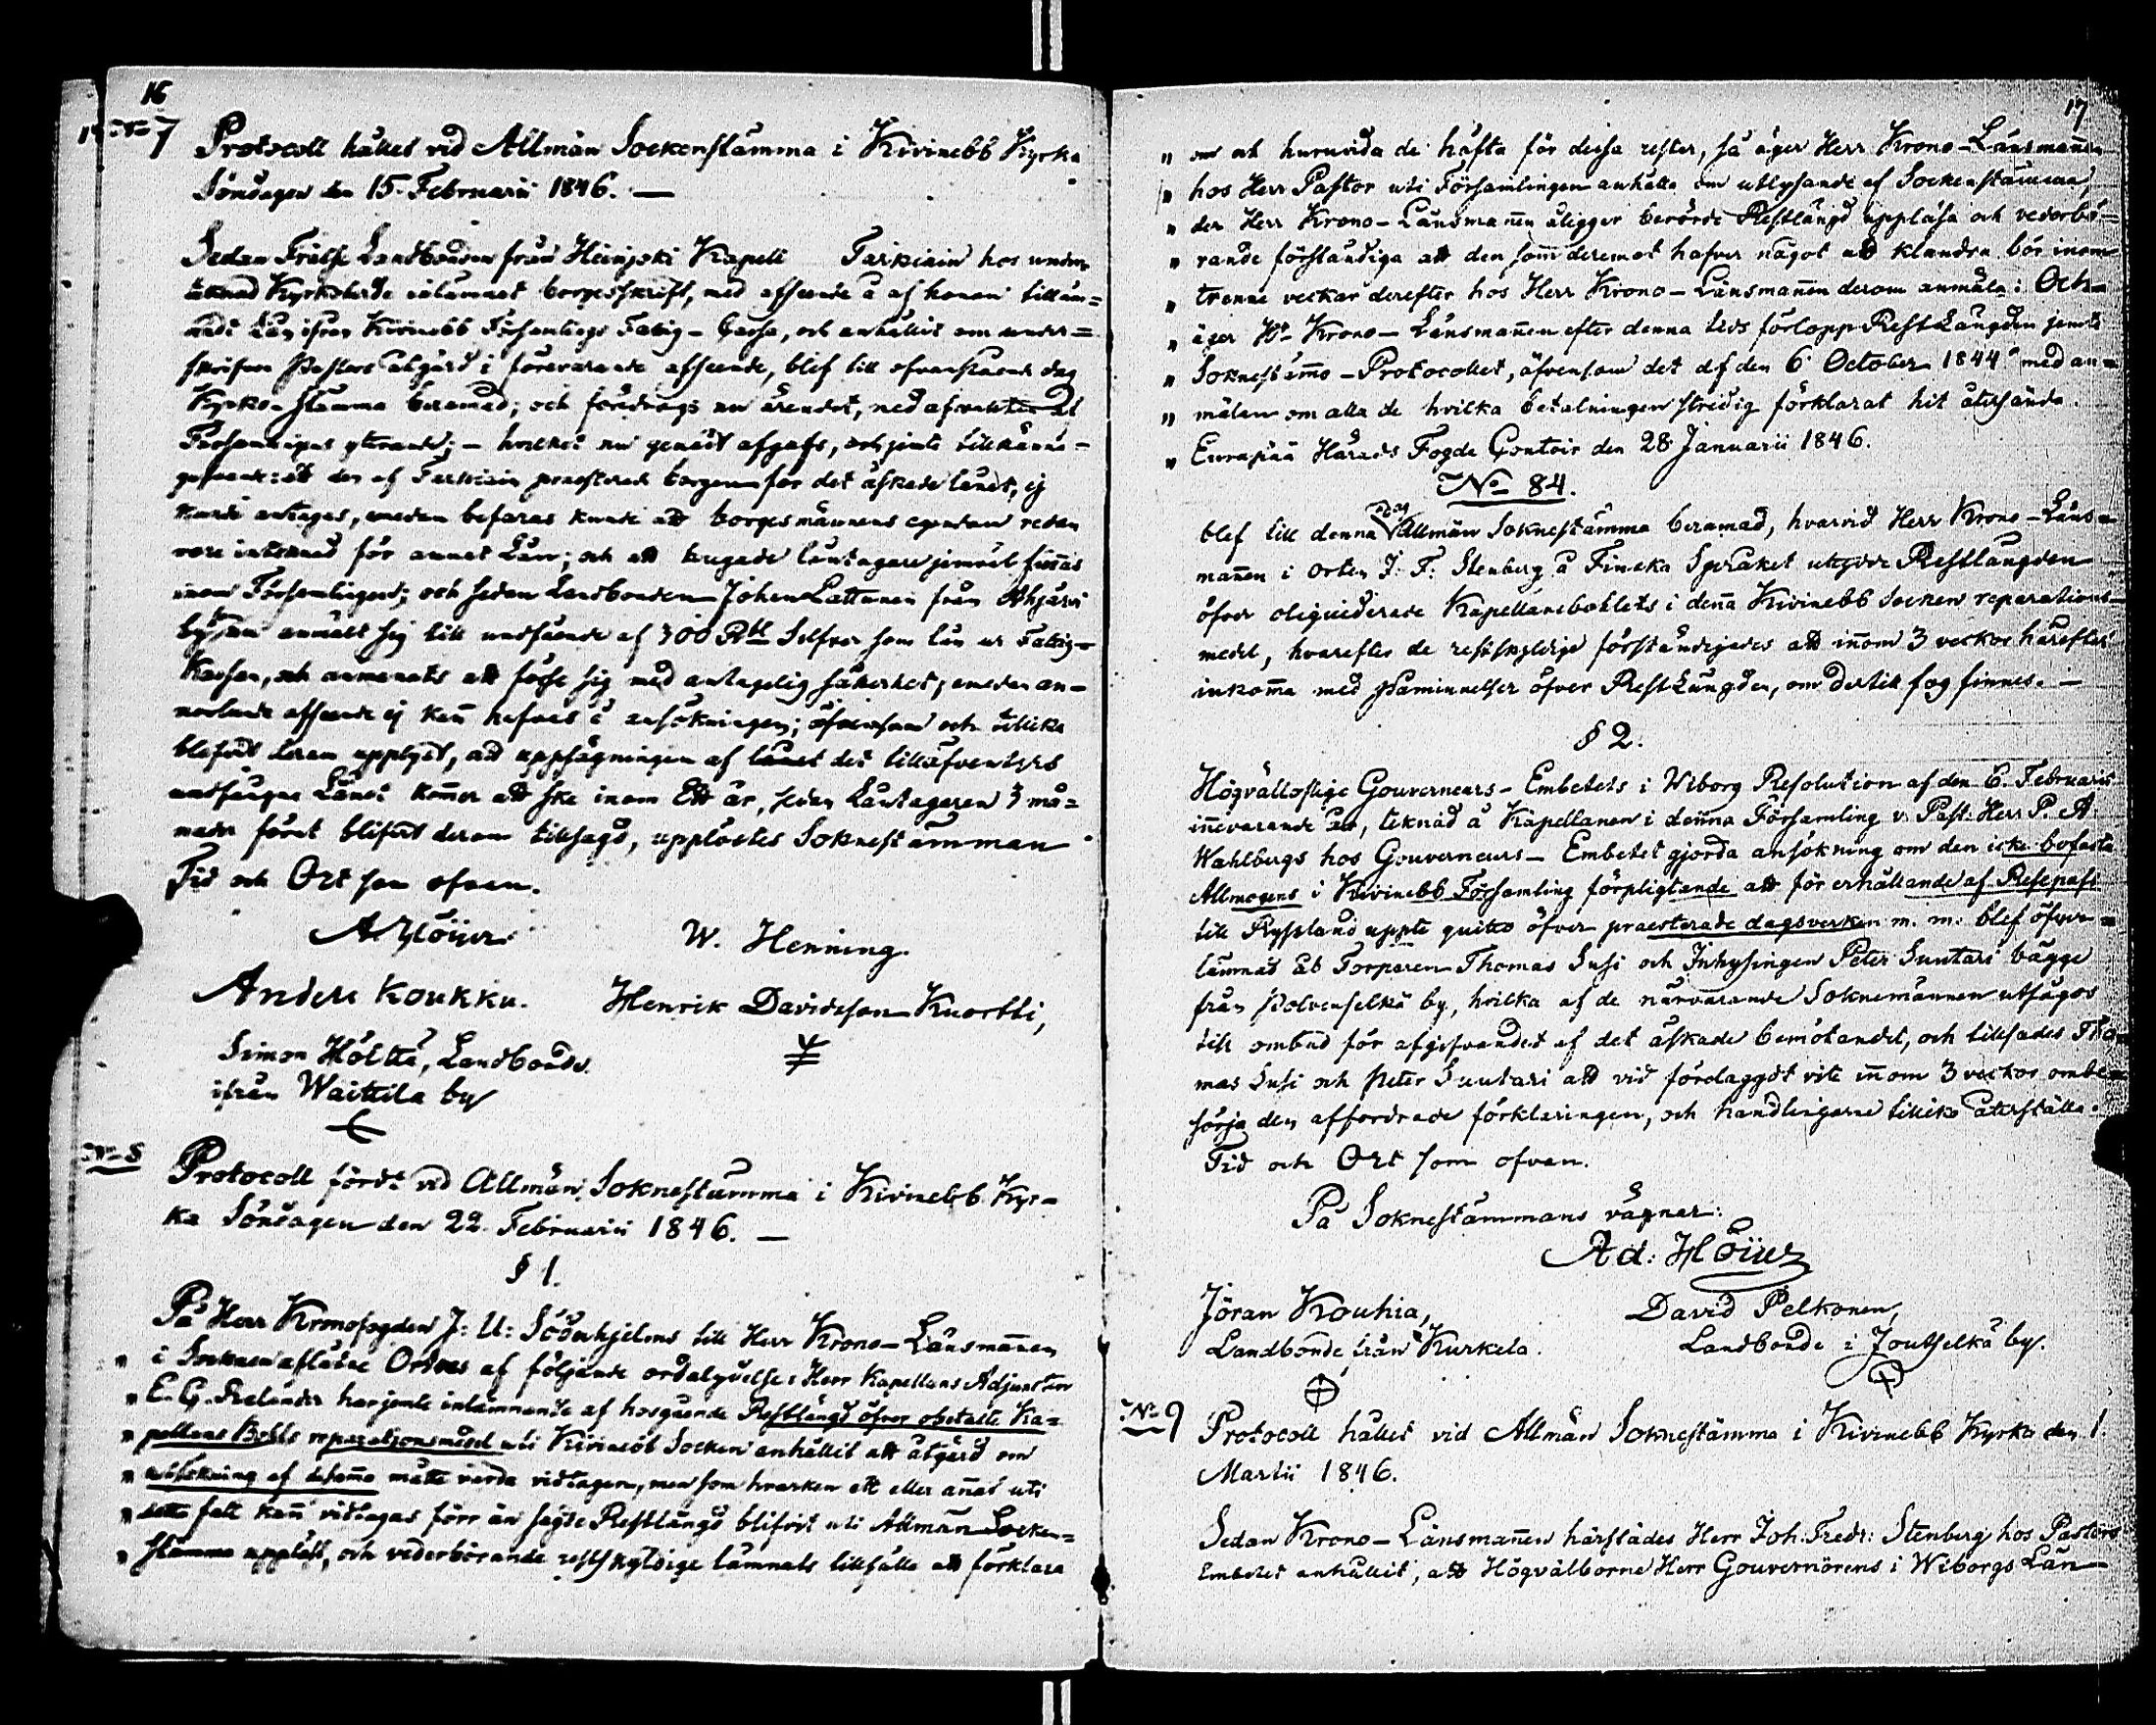 16
No 7 Protocoll hållet vid Allmän Sockenstämma i Kivinebb Kyrka
Söndagen den 15. Februarii 1846. —
Sedan Frälse Landbonden från Heinjoki Kapell Tarkiain hos under-
tecknad Kyrkoherde inlämnat borgesskrift, med afseende å af honom
Lån ifrån Kivinebb Församlings Fattig-Cassa, och anhållit om under-
skrifven Pastors åtgärd i förevarande afseende, blef till ofvanstående dag
Kyrko-stämma beramad; och föredrogs nu ärendet, med afvaktan af
Församlingens yttrande; — hvilket nu genast afgafs, och jemte tillkänna-
gifvande: att den af Tarkiain praesterade borgen för det äskade lånet, ej
kunde antagas, emedan befaras kunde att borgesmännens egendom redan
vore intecknad för annat Lån; och att låntagare jemväl finnas
inom Församlingen; och sedan Landbonden Johan Lattunen från Ahjärvi
by anmält sig till undfående af 300 Rbl Silfver som lån ur Fattig-
Kassan, och anmanats att förse sig med antagelig säkerhet; emedan an-
norlunda afseende ej kan hafvas å ansökningen; äfvensom och tillika
blifvit derom upplyst, att uppsägningen af lånet det tilläfventyrs
undfångna Lånet kommer att ske inom Ett år, sedan Låntagaren 3 må-
nader förut blifvit derom tillsagd, upplöstes Soknestämman
Tid och Ort som ofvan.
A Höijer W. Henning.
Anders Koukku. Henrik Davidsson Kuortti,
Simon Hölttä, Landbonde
ifrån Waittila by
No 8 Protocoll fördt vid Allmän Soknestämma i Kivinebb Kyr-
ka Söndagen den 22. Februarii 1846. —
§ 1.
På Herr Kronofogden J: U: Söderhjelms till Herr Krono-Länsmannen
" i Socknen aflåtne Ordres af följande ordalydelse: Herr Kapellans Adjuncten
" E. G. Relander har jemte inlämnande af hosgående Restlängd öfver obetalte Ka-
" pellans Bohls reparationsmedel uti Kivinebb Socken anhållit att åtgärd om
" utsökning af desamma måtte varda vidtagen, men som hvarken ett eller annat uti
" detta fall kan vidtagas förr än sagde Restlängd blifvit uti Allmän Socken-
" stämma uppläst, och vederbörande restskyldige lämnats tillfälle att förklara
17
" om och huruvida de häfta för dessa rester, så äger Herr Krono-Länsmannen
" hos Herr Pastor uti Församlingen anhålla om utlysande af Sockenstämma
" der Herr Krono-Länsmannen åligger berörde Restlängd uppläsa och vederbö-
" rande förständiga att den som deremot hafver något att klandra bör inom
" trenne veckor derefter hos Herr Krono-Länsmannen derom anmäla: Och
" äger Hr Krono-Länsmannen efter denna tids förlopp RestLängden jemte
" Soknestämmo-Protocollet, äfvensom det af den 6 October 1844 med an-
" mälan om alla de hvilka betalningen stridig förklarat hit återsända.
" Eurapää Härads Fogde Contoir den 28 Januarii 1846.
No 84.
blef till denna dag Allmän Soknestämma beramad, hvarvid Herr Krono-Läns-
mannen i orten J: F: Stenberg å Finska Språket utgjorde Restlängden
öfver oliquiderade Kapellansbohlets i denna Kivinebb Socken reparations-
medel, hvarefter de restskyldige förständigades att innom 3 veckor härefter
inkomma med påminnelser öfver RestLängden, om dertill fog finnes. —
§ 2.
Högvälloflige Gouverneurs-Embetets i Wiborg Resolution af den 6. Februarii
innevarande år, teknad å Kapellanen i denna Församling v. Past: Herr P. A
Wahlbergs hos Gouverneurs-Embetet gjorda ansökning om den icke bofasta
Allmogens i Kivinebb Församling förpligtande att för erhållande af Resepass
till Ryssland uppte quitto öfver praesterade dagsverken m. m. blef öfver-
lämnad åt Torparen Thomas Susi och Inhysingen Peter Suntari bägge
från Polvenselkä by, hvilka af de närvarande Soknemännen utsågos
till ombud för afgifvandet af det äskade bemötandet, och tillsades Tho-
mas Susi och Peter Suntari att vid förelaggdt vite innom 3 veckor ombe-
sörja den affordrade förklaringen, och handlingarne tillika återställa.
Tid och Ort som ofvan.
På Soknestämmans vägnar:
Ad: Höijer
Jöran Kouhia, David Pelkonen,
Landbonde från Kurkela. Landbonde i Joutselkä by.
No 9 Protocoll hållet vid Allmän Soknestämma i Kivinebb Kyrka den 1.
Martii 1846.
Sedan Krono-Länsmannen härstädes Herr Joh: Fredr: Stenberg hos Pastors
Embetet anhållit, att Högvälborne Herr Gouvernörens i Wiborgs Län